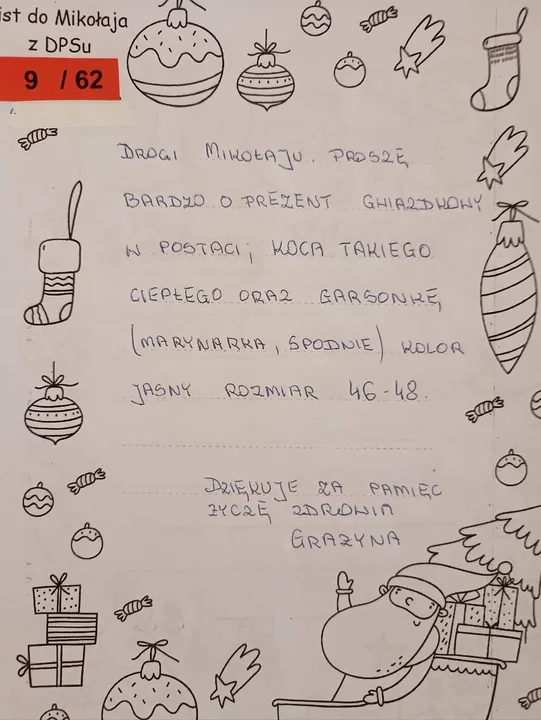 ist do Mikołaja
z DPSu
9 / 62
DROGI MIKOŁAJU. PROSZĘ
BARDZO O PREZENT GWIAZDKOWY
W POSTACI; KOCA TAKIEGO
CIEPŁEGO ORAZ GARSONKĘ,
(MARYNARKA, SPODNIE) KOLOR
JASNY ROZMIAR 46-48.
DZIĘKUJE ZA PAMIĘĆ
ŻYCZĘ ZDROWIA
GRAŻYNA